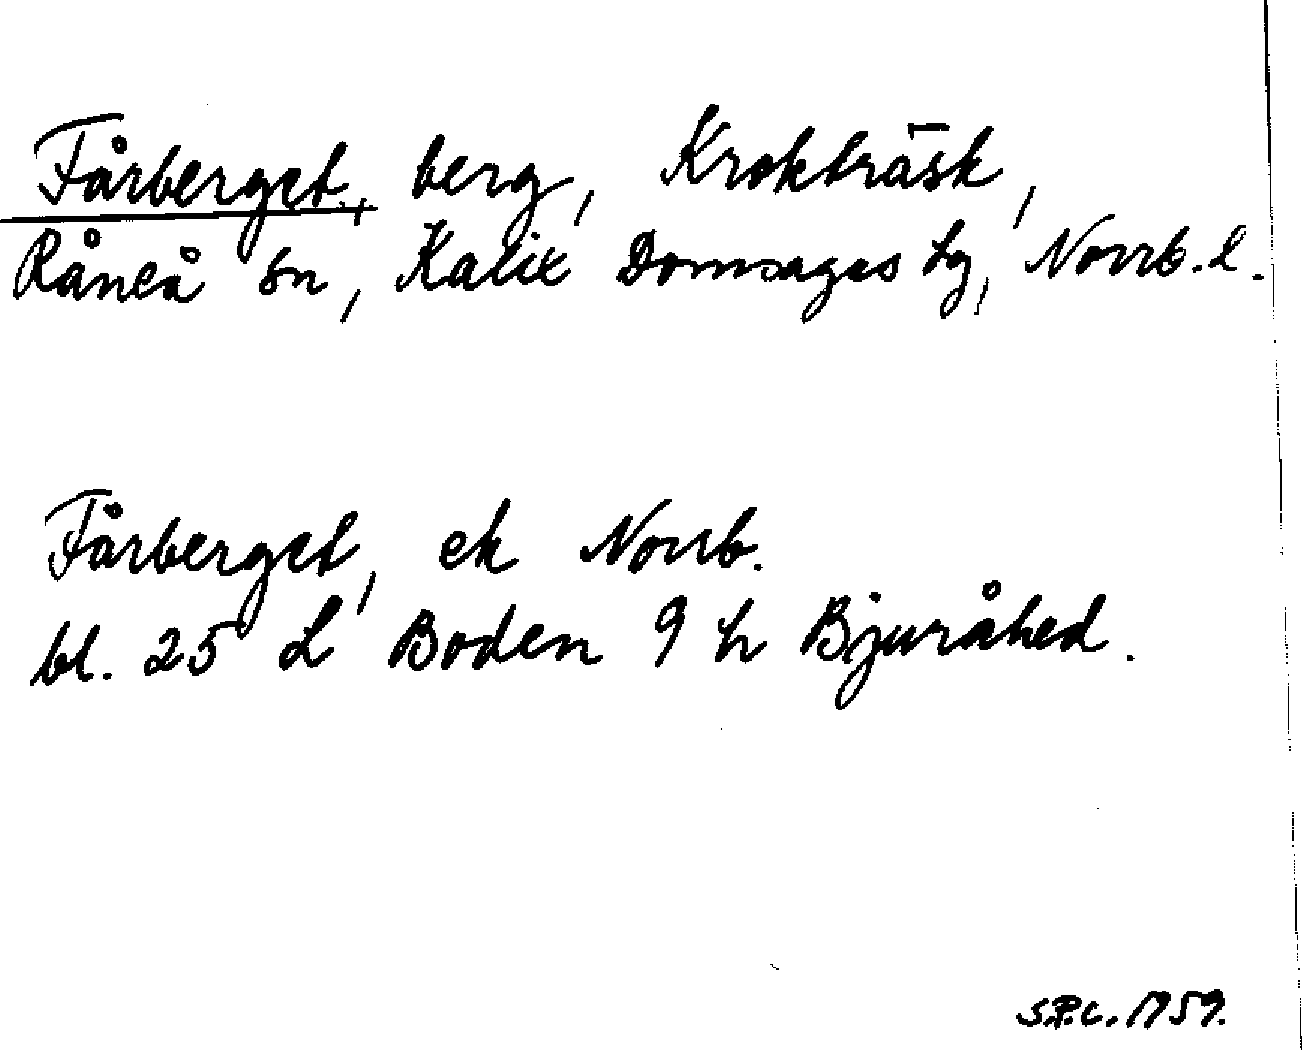 Fårberget, berg, Krokträsk,
Råneå sn, Kalix Domsagas tg, Norrb. l.
Fårberget, ek Norrb.
bl. 25 L Boden 9 h Bjuråhed.
S.P.C. 1959.